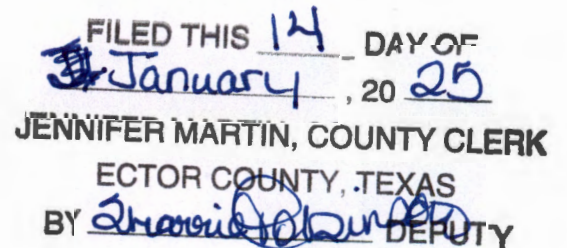 FILED THIS 14 DAY OF
January, 20 25
JENNIFER MARTIN, COUNTY CLERK
ECTOR COUNTY, TEXAS
BY DEPUTY